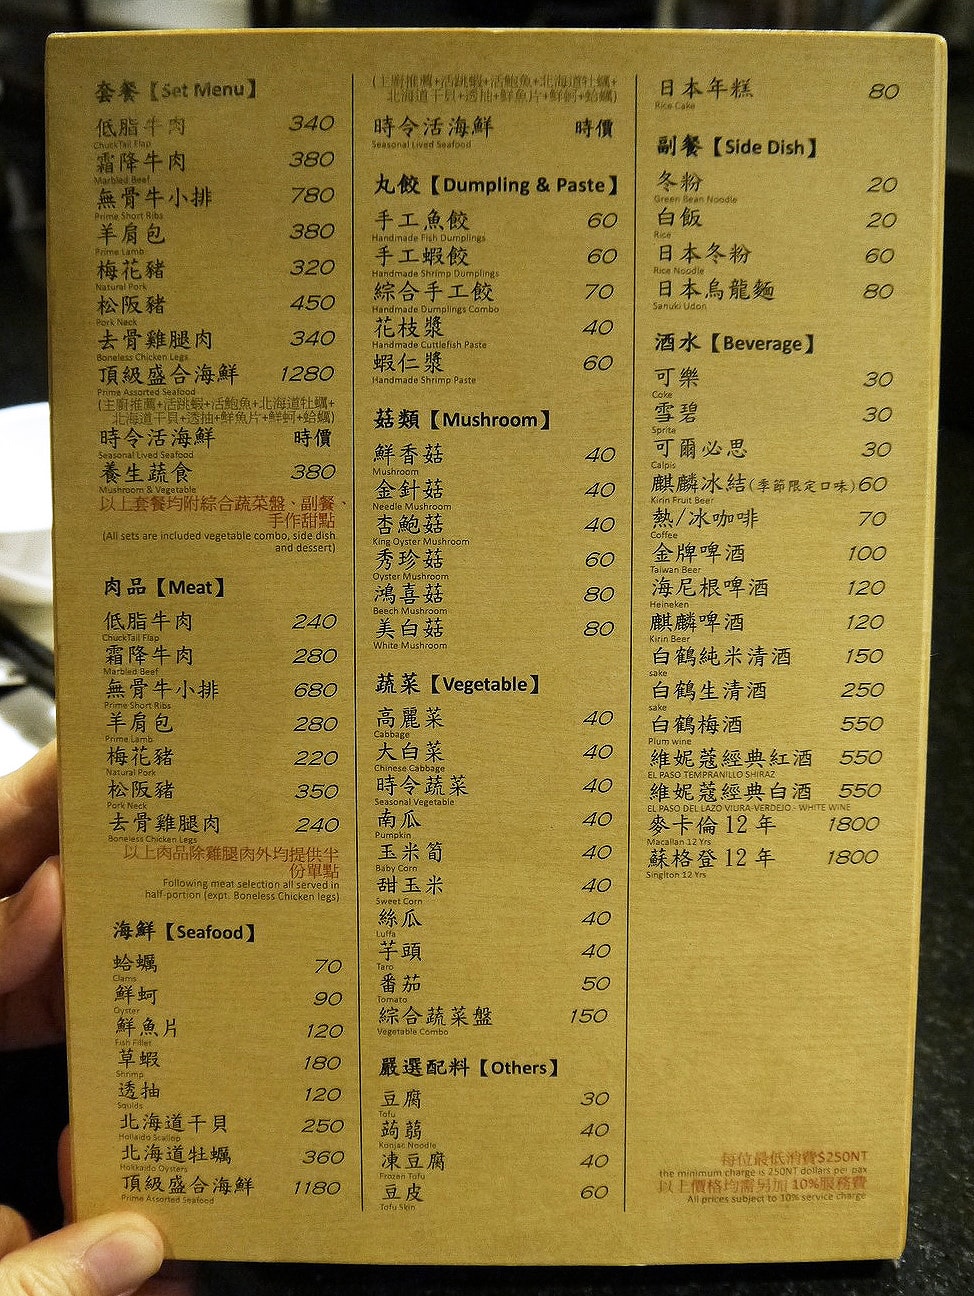 套餐【Set Menu】
低脂牛肉 340
ChuckTail Flap
霜降牛肉 380
Marbled Beef
無骨牛小排 780
Prime Short Ribs
羊肩包 380
Prime Lamb
梅花豬 320
Natural Pork
松阪豬 450
Pork Neck
去骨雞腿肉 340
Boneless Chicken Legs
頂級盛合海鮮 1280
Prime Assorted Seafood
(主廚推薦+活跳蝦+活鮑魚+北海道牡蠣+
北海道干貝+透抽+鮮魚片+鮮蚵+蛤蠣)
時令活海鮮 時價
Seasonal Lived Seafood
養生蔬食 380
Mushroom & Vegetable
以上套餐均附綜合蔬菜盤、副餐、
手作甜點
(All sets are included vegetable combo, side dish
and dessert)
肉品【Meat】
低脂牛肉 240
ChuckTail Flap
霜降牛肉 280
Marbled Beef
無骨牛小排 680
Prime Short Ribs
羊肩包 280
Prime Lamb
梅花豬 220
Natural Pork
松阪豬 350
Pork Neck
去骨雞腿肉 240
Boneless Chicken Legs
以上肉品除雞腿肉外均提供半
份單點
Following meat selection all served in
half-portion (expt. Boneless Chicken legs)
海鮮【Seafood】
蛤蠣 70
Clams
鮮蚵 90
Oyster
鮮魚片 120
Fish Fillet
草蝦 180
Shrimp
透抽 120
Squids
北海道干貝 250
Hollaido Scallop
北海道牡蠣 360
Hokkaido Oysters
頂級盛合海鮮 1180
Prime Assorted Seafood
(主廚推薦+活跳蝦+活鮑魚+北海道牡蠣+
北海道干貝+透抽+鮮魚片+鮮蚵+蛤蠣)
時令活海鮮 時價
Seasonal Lived Seafood
丸餃【Dumpling & Paste】
手工魚餃 60
Handmade Fish Dumplings
手工蝦餃 60
Handmade Shrimp Dumplings
綜合手工餃 70
Handmade Dumplings Combo
花枝漿 40
Handmade Cuttlefish Paste
蝦仁漿 60
Handmade Shrimp Paste
菇類【Mushroom】
鮮香菇 40
Mushroom
金針菇 40
Needle Mushroom
杏鮑菇 40
King Oyster Mushroom
秀珍菇 60
Oyster Mushroom
鴻喜菇 80
Beech Mushroom
美白菇 80
White Mushroom
蔬菜【Vegetable】
高麗菜 40
Cabbage
大白菜 40
Chinese Cabbage
時令蔬菜 40
Seasonal Vegetable
南瓜 40
Pumpkin
玉米筍 40
Baby Corn
甜玉米 40
Sweet Corn
絲瓜 40
Luffa
芋頭 40
Taro
番茄 50
Tomato
綜合蔬菜盤 150
Vegetable Combo
嚴選配料【Others】
豆腐 30
Tofu
蒟蒻 40
Konjac Noodle
凍豆腐 40
Frozen Tofu
豆皮 60
Tofu Skin
日本年糕 80
Rice Cake
副餐【Side Dish】
冬粉 20
Green Bean Noodle
白飯 20
Rice
日本冬粉 60
Rice Noodle
日本烏龍麵 80
Sanuki Udon
酒水【Beverage】
可樂 30
Coke
雪碧 30
Sprite
可爾必思 30
Calpis
麒麟冰結(季節限定口味) 60
Kirin Fruit Beer
熱/冰咖啡 70
Coffee
金牌啤酒 100
Taiwan Beer
海尼根啤酒 120
Heineken
麒麟啤酒 120
Kirin Beer
白鶴純米清酒 150
sake
白鶴生清酒 250
sake
白鶴梅酒 550
Plum wine
維妮蔻經典紅酒 550
EL PASO TEMPRANILLO SHIRAZ
維妮蔻經典白酒 550
EL PASO DEL LAZO VIURA-VERDEJO - WHITE WINE
麥卡倫12年 1800
Macallan 12 Yrs
蘇格登12年 1800
Singlton 12 Yrs
每位最低消費$250NT
the minimum charge is 250NT dollars per pax
以上價格均需另加 10%服務費
All prices subject to 10% service charge